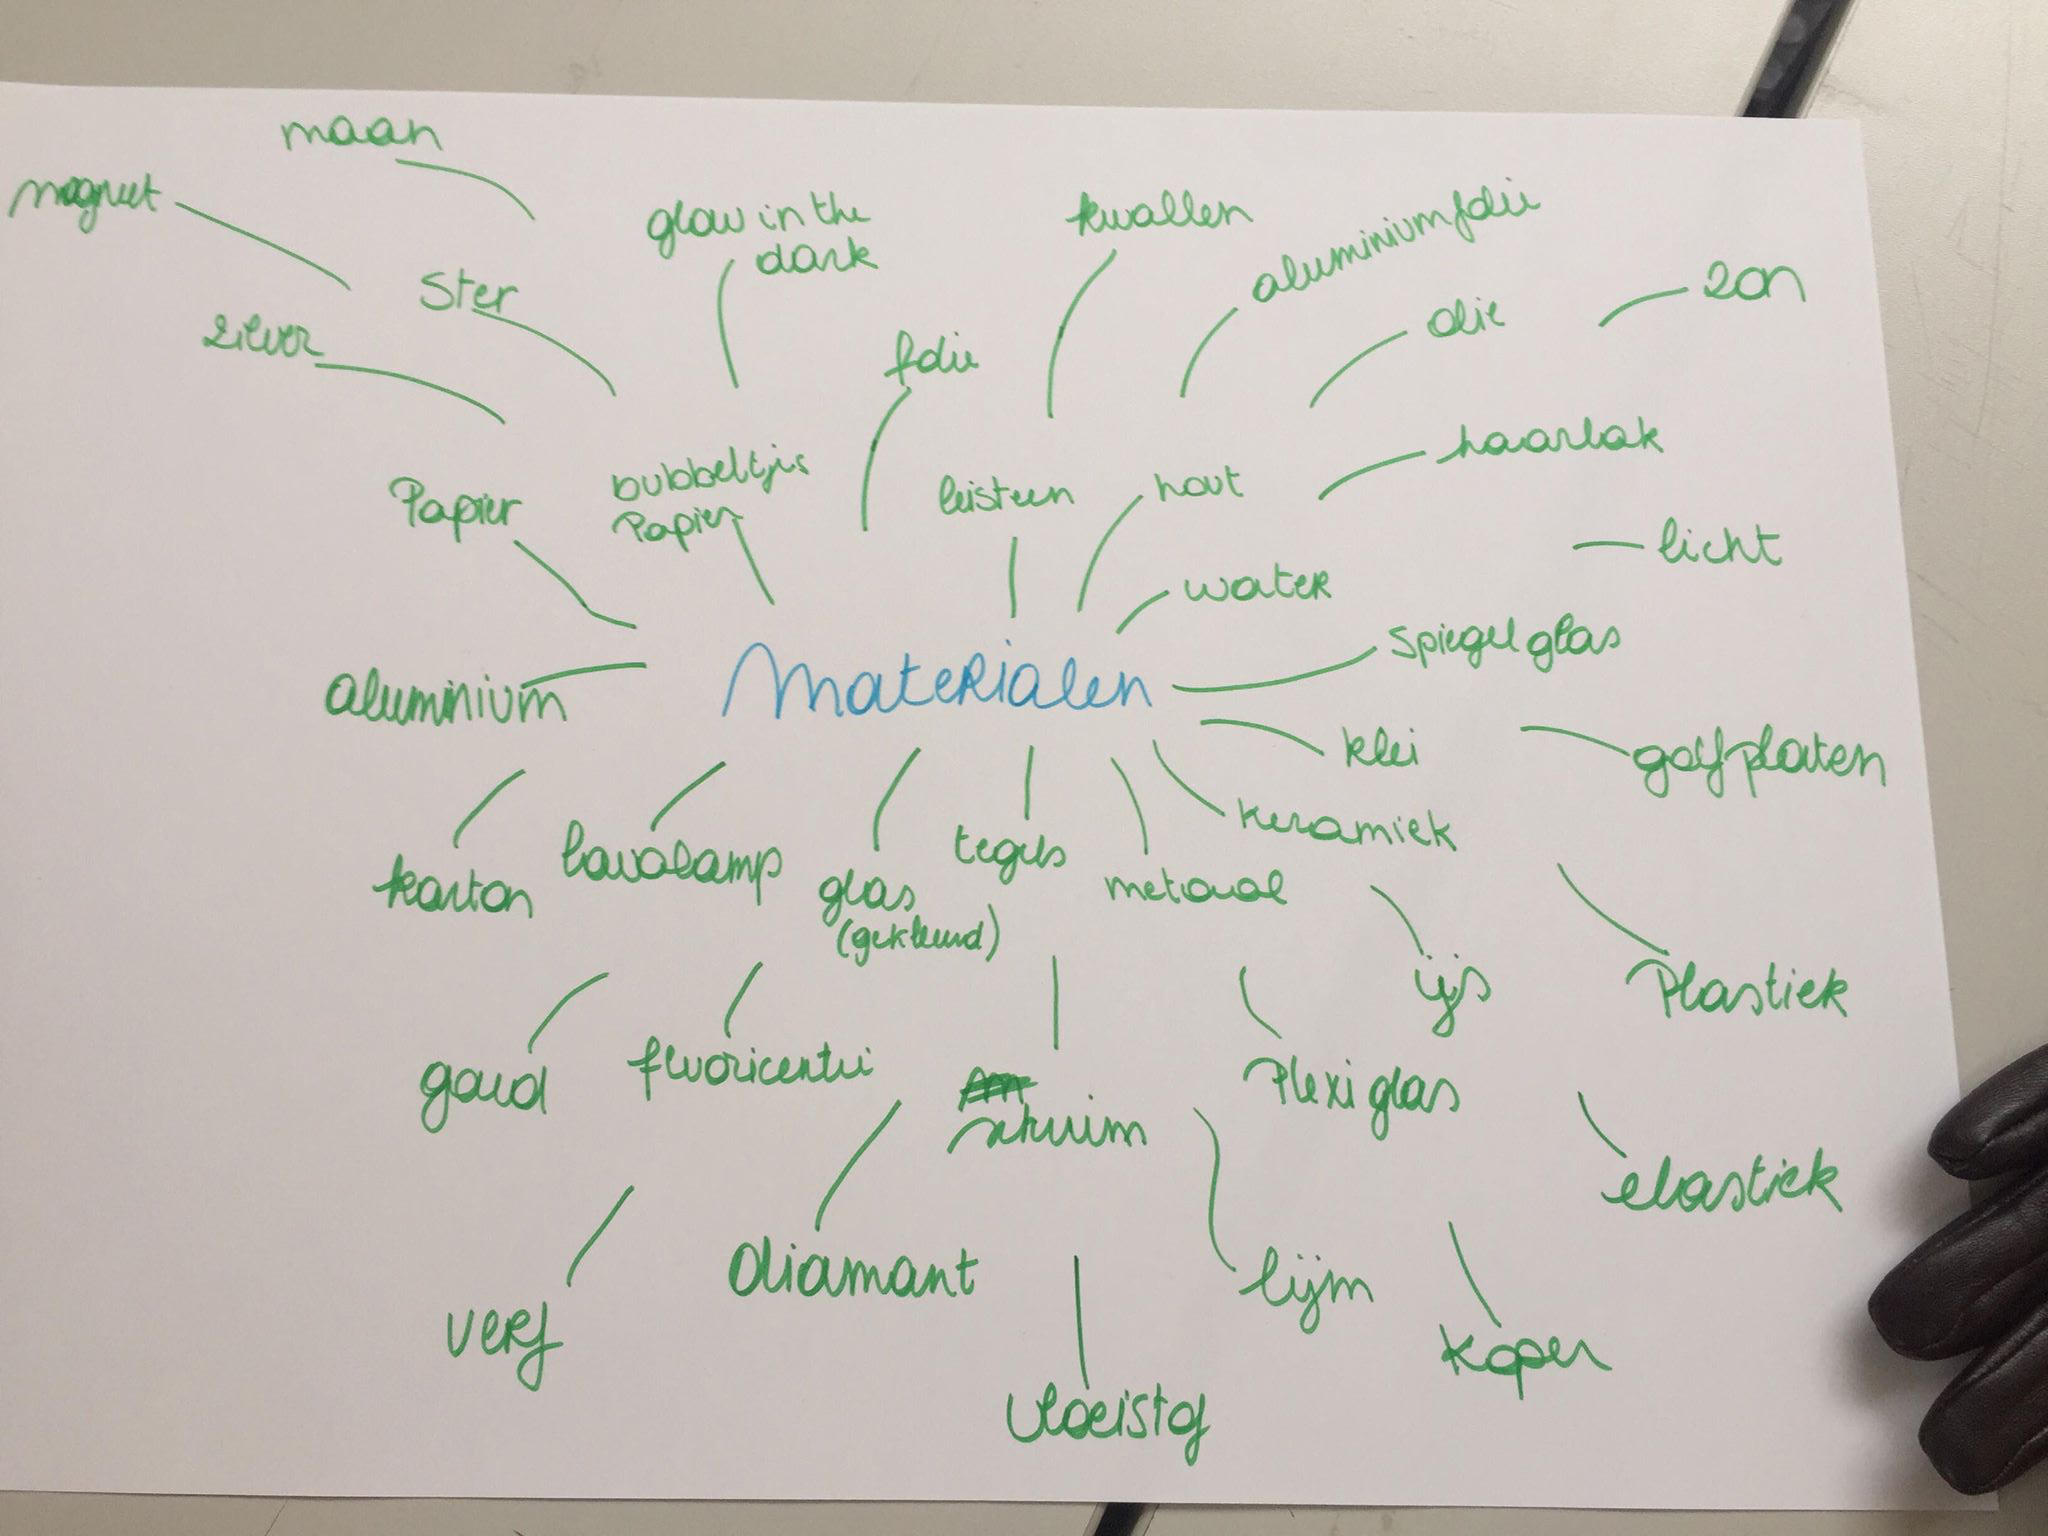 maan
magneet
glow in the
dark
kwallen
aluminiumfolie
zon
ster
olie
zilver
folie
haarlak
papier
bubbeltjes
papier
leisteen
hout
licht
water
spiegelglas
materialen
aluminium
klei
golfplaten
keramiek
karton
lavalamp
glas
(gekleurd)
tegels
metaal
ijs
plastiek
goud
fluoricentie
schuim
plexiglas
elastiek
diamant
lijm
verf
koper
vloeistof